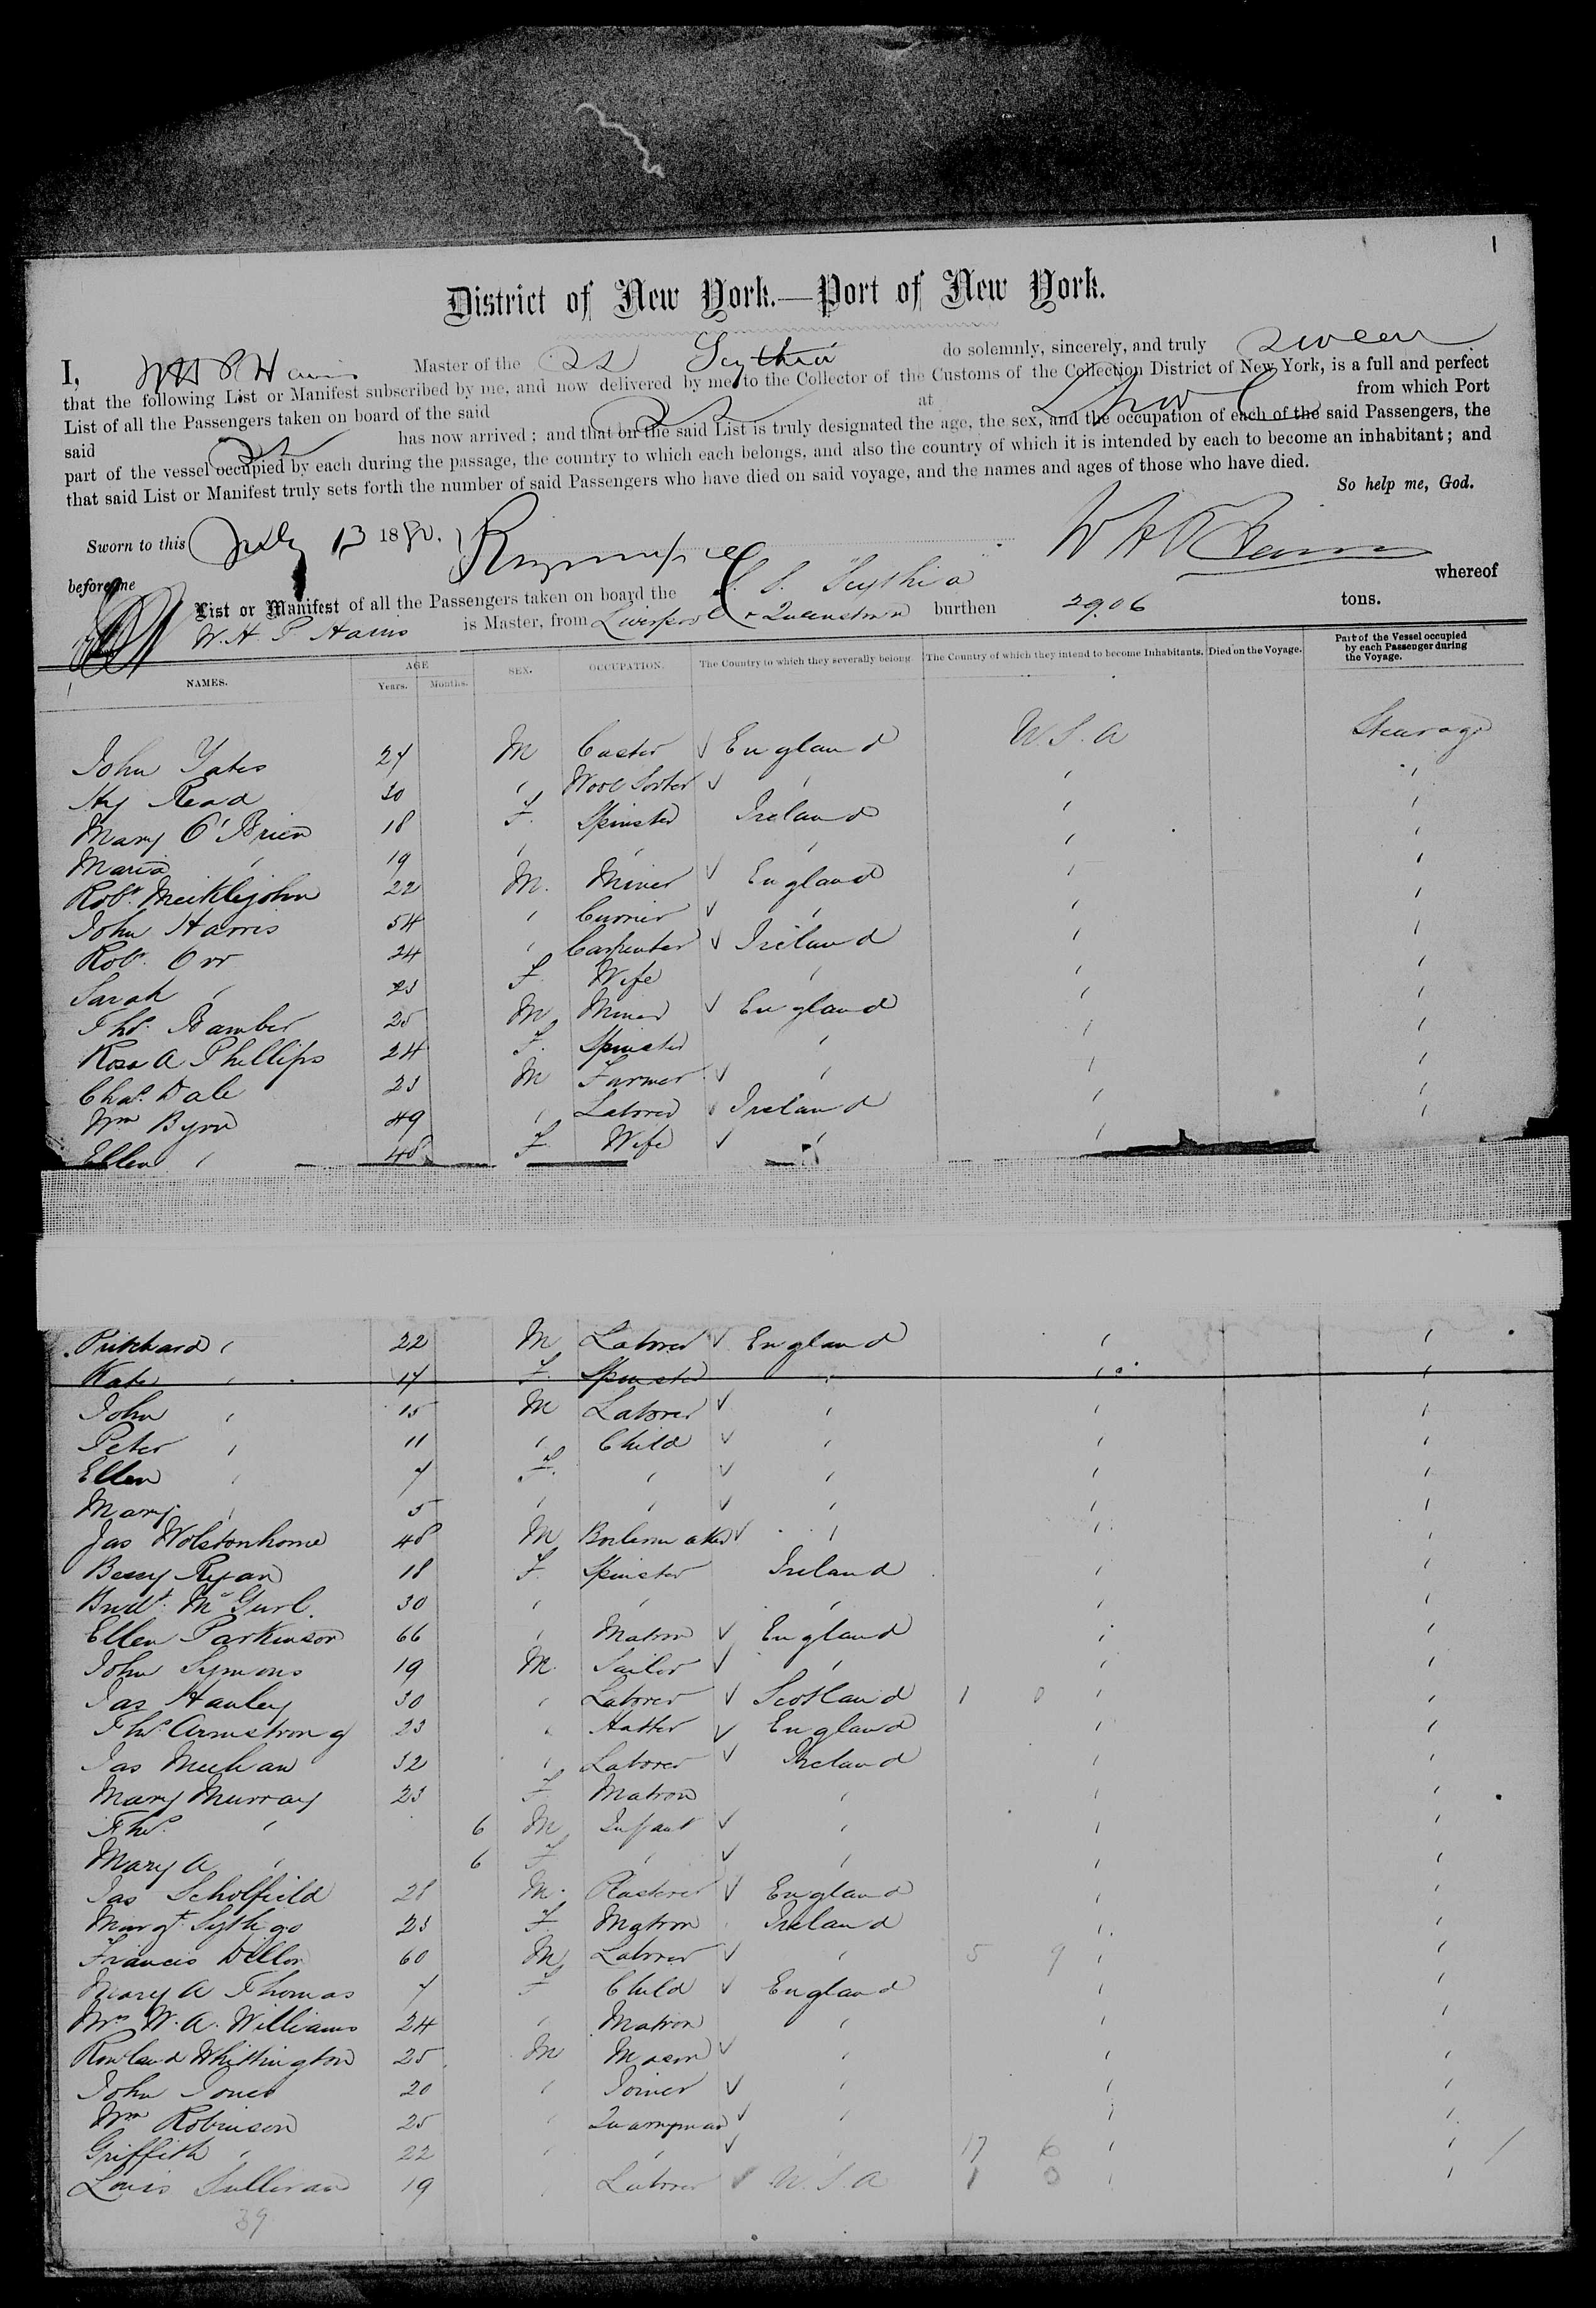 1
District of New York.—Port of New York.
I, W H P Hains Master of the SS Scythia do solemnly, sincerely, and truly swear
that the following List or Manifest subscribed by me, and now delivered by me to the Collector of the Customs of the Collection District of New York, is a full and perfect
List of all the Passengers taken on board of the said SS at from which Port
said SS has now arrived; and that on the said List is truly designated the age, the sex, and the occupation of each of the said Passengers, the
part of the vessel occupied by each during the passage, the country to which each belongs, and also the country of which it is intended by each to become an inhabitant; and
that said List or Manifest truly sets forth the number of said Passengers who have died on said voyage, and the names and ages of those who have died.
So help me, God.
Sworn to this July 13 1880. W H P Hains
before me
List or Manifest of all the Passengers taken on board the S. S. Scythia whereof
W. H. P Hains is Master, from Liverpool & Queenstown burthen 2906 tons.
NAMES. AGE Years. Months. SEX. OCCUPATION. The Country to which they severally belong. The Country of which they intend to become Inhabitants. Died on the Voyage. Part of the Vessel occupied by each Passenger during the Voyage.
John Yates 27 M Caster ✓ England U.S.A Steerage
Hy Read 30 " Wool Sorter ✓ " " "
Mary O'Brien 18 F. Spinster Ireland " "
Maria " 19 " " " " "
Robt. Meiklejohn 22 M. Miner ✓ England " "
John Harris 54 " Currier ✓ " " "
Robt. Orr 24 " Carpenter ✓ Ireland " "
Sarah " 23 F. Wife " " "
Thos. Bamber 25 M Miner ✓ England " "
Rosa A Phillips 24 F. Spinster " " "
Chas. Dale 23 M Farmer ✓ " " "
Wm Byrn 49 " Laborer Ireland " "
Ellen " 48 F Wife ✓ " " "
Pritchard " 22 M Laborer ✓ England " "
Kate " 17 F. Spinster " " "
John " 15 M Laborer ✓ " " "
Peter " 11 " Child ✓ " " "
Ellen " 7 F. " ✓ " " "
Mary " 5 " " ✓ " " "
Jas Wolstonhome 48 M Boilermaker ✓ " " "
Bessy Ryan 18 F. Spinster Ireland " "
Bridt. McGurl. 30 " " " " "
Ellen Parkinson 66 " Matron ✓ England " "
John Symons 19 M. Sailor ✓ " " "
Jas Hanley 30 " Laborer ✓ Scotland 1 0 " "
Thos. Armstrong 23 " Hatter ✓ England " "
Jas Meehan 32 " Laborer ✓ Ireland " "
Mary Murray 23 F Matron " " "
Thos. " 6 M Infant ✓ " " "
Mary A " 6 F " ✓ " " "
Jas Scholfield 28 M. Plasterer ✓ England " "
Margt. Lythgo 23 F. Matron Ireland " "
Francis Dillon 60 M Laborer ✓ " 5 9 " "
Mary A Thomas 7 F Child ✓ England " "
Mrs W. A. Williams 24 " Matron " " "
Rowland Whittington 25 M Mason ✓ " " "
John Jones 20 " Joiner ✓ " " "
Wm Robinson 25 " Quarryman ✓ " " "
Griffith " 22 " " ✓ " 17 6 " "
Louis Sullivan 19 " Laborer ✓ U.S.A 1 0 " "
39